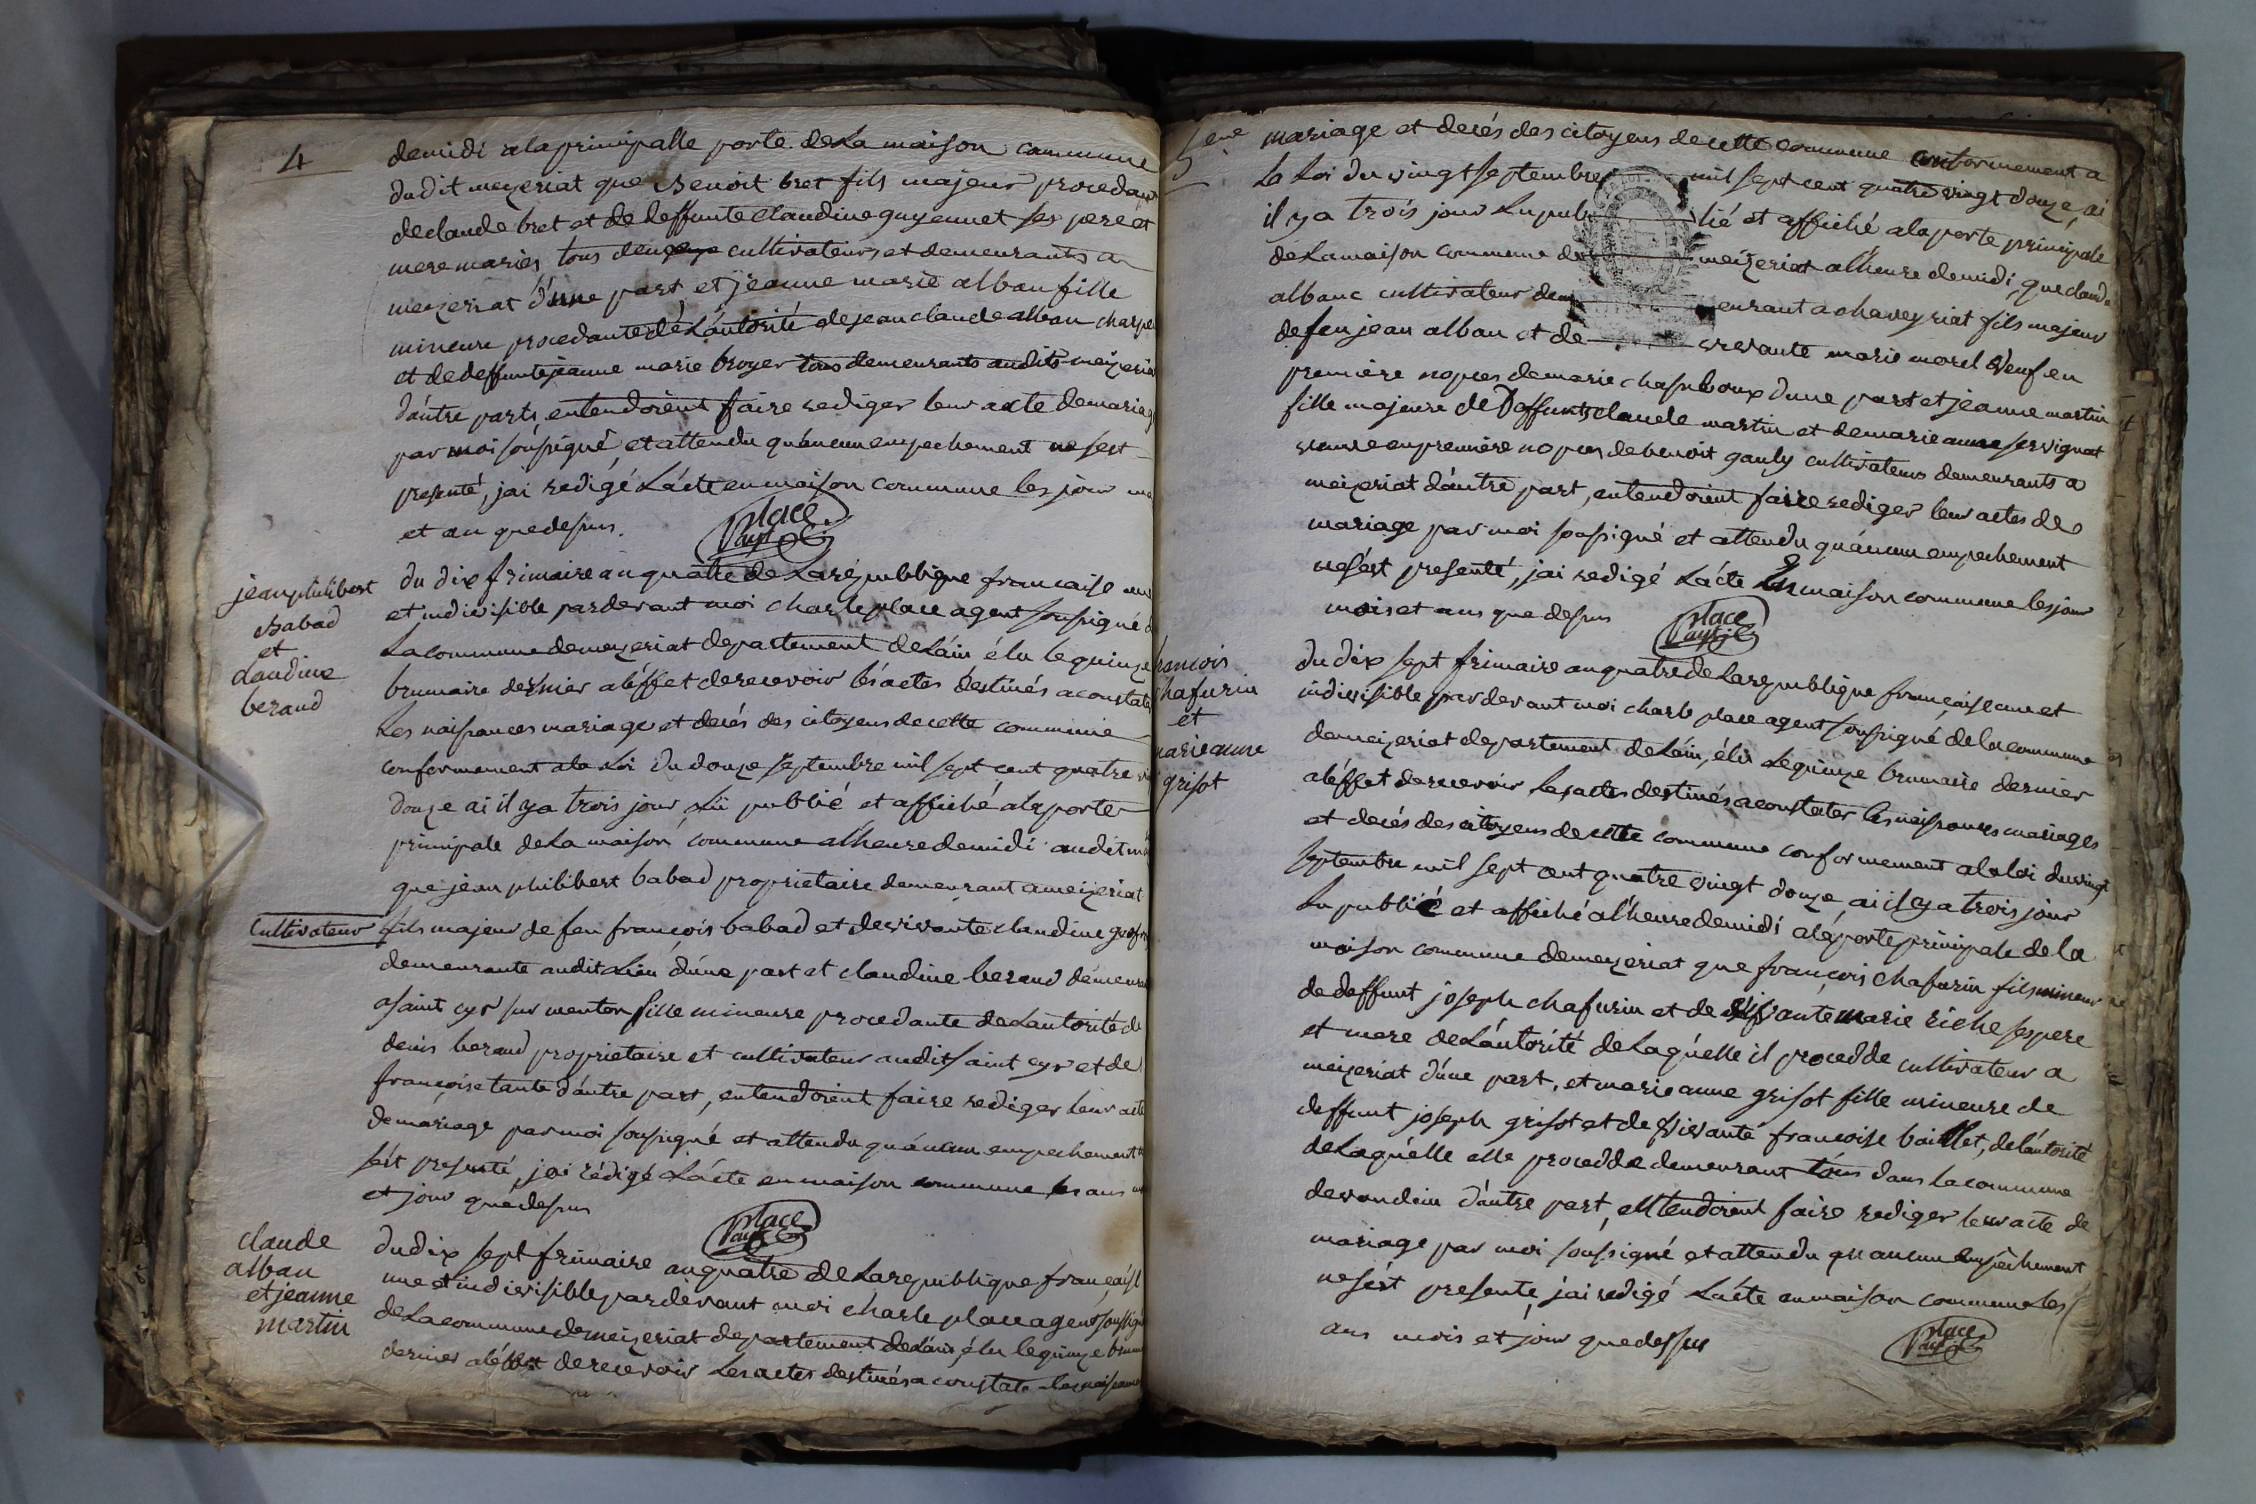 4
demidi a la principalle porte de La maison commune
dudit mezeriat que Benoit bret fils majeur procedant
de claude bret et de deffunte Claudine guyennet ses pere et
mere mariés tous deux cultivateurs et demeurants a
mezeriat d'une part et jeanne marie alban fille
mineure procedante de L'autorité de jean claude alban charpe
et de deffunte jeanne marie broyer tous demeurants audits meizeriat
d'autre parts entendoient faire rediger leur acte de mariage
par moi soussigné, et attendu qu'aucun empechement ne sest
presenté, jai redigé L'acte en maison commune les jour
et an que dessus.
place
agt
jean philibert
Babad
et
claudine
beraud
du dix frimaire an quatre de La république francaise une
et indivisible pardevant moi charle place agent soussigné de
La commune de mezeriat departement de L'ain élu le quinze
brumaire dernier a l'effet de recevoir les actes destinés a constater
Les naissances mariage et decés des citoyens de cette commune
conformement a la Loi du douze septembre mil sept cent quatre
douze ai il y a trois jour Lu publié et affiché a la porte
principale de La maison commune a l'heure de midi audit
que jean philibert babad proprietaire demeurant a meizeriat
Cultivateur fils majeur de feu françois babad et de vivante claudine
demeurante audit Lieu d'une part et claudine beraud demeurant
a saint cyr sur menton fille mineure procedante de L'autorité de
denis beraud proprietaire et cultivateur audit saint cyr et de
françoise tante d'autre part, entendoient faire rediger leur acte
de mariage par moi soussigné et attendu qu'aucun empechement
sést presenté, jai rédigé L'acte en maison commune les ans
et jour que dessus
place
agt
claude
alban
et jeanne
martin
du dix sept frimaire an quatre de La republique françaisé
une et indivisible pardevant moi charle place agent soussigné
de La commune de meizeriat departement de L'ain, élu le quinze
dernier a l'effet de recevoir Les actes destinés a constate Les naissance
5eme
mariage et decés des citoyens de cette commune conformement a
La Loi du vingt septembre mil sept cent quatre vingt douze, ai
il y a trois jour Lu pub lié et affiché a la porte principale
de La maison commune de meizeriat a l'heure de midi, que claude
albanc cultivateur dem eurant a chaveyriat fils majeur
de feu jean alban et de vivante marie morel veuf en
premiére nopces de marie chassiboux d'une part et jeanne martin
fille majeure de Deffunts claude martin et de marie anne servignat
veuve en premiere nopces de benoit gauly cultivateurs demeurants a
meizeriat d'autre part, entendoient faire rediger leur actes de
mariage par moi soussigné et attendu qu'aucun empechement
ne sést presenté, jai redigé L'acte En maison commune les jour
mois et ans que dessus
place
agt
francois
chafurin
et
marie anne
grisot
du dix sept frimaire an quatre de La republique françaisé une et
indivisible pardevant moi charle place agent soussigné de la commune
de meizeriat departement de L'ain, élu Le quinze brumaire dernier
a l'éffet de recevoir Les actes destinés a constater les naissances mariages
et decés des citoyens de cette commune conformement a la loi du vingt
septembre mil sept cent quatre vingt douze, ai il y a trois jour
Lu publié et affiché a l'heure de midi a la porte principale de la
maison commune de mezeriat que françois chafurin fils mineur
de deffunt joseph chafurin et de vivante marie riche ses pere
et mere de L'autorité de Laquelle il procedde cultivateur a
meizeriat d'une part, et marie anne grisot fille mineure de
deffunt joseph grisot et de vivante francoise baillet, de l'autorité
de Laquélle elle procedde demeurant tous dans la commune
de vandein d'autre part, entendoient faire rediger leur acte de
mariage par moi soussigné et attendu qu aucun empéchement
ne sést presenté, jai redigé L'acte en maison commune Les
ans mois et jour que dessus
place
agt